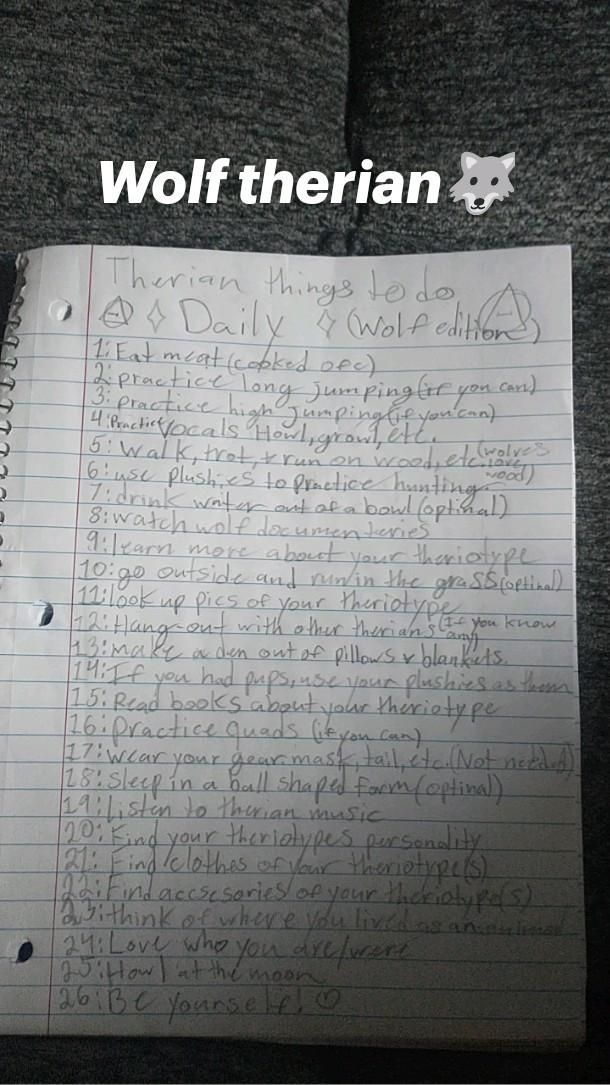 Wolf therian 🐺
Therian things to do
Daily (Wolf edition)
1: Eat meat (cooked ofc)
2: practice long jumping (if you can)
3: practice high jumping (if you can)
4: Practice vocals Howl, growl, etc.
5: Walk, trot, + run on wood, etc. (wolves love wood)
6: use plushies to practice hunting
7: drink water out of a bowl (optinal)
8: watch wolf documenteries
9: learn more about your theriotype
10: go outside and run in the grass (optinal)
11: look up pics of your theriotype
12: Hang-out with other therians (If you know any)
13: make a den out of pillows & blankets.
14: If you had pups, use your plushies as them
15: Read books about your theriotype
16: Practice quads (if you can)
17: wear your gear mask, tail, etc. (Not needed)
18: Sleep in a ball shaped form (optinal)
19: listen to therian music
20: Find your theriotypes personality
21: Find clothes of your theriotype(s)
22: Find accsesories of your theriotype(s)
23: think of where you lived as an animal
24: Love who you are/were
25: Howl at the moon
26: Be yourself! ♡